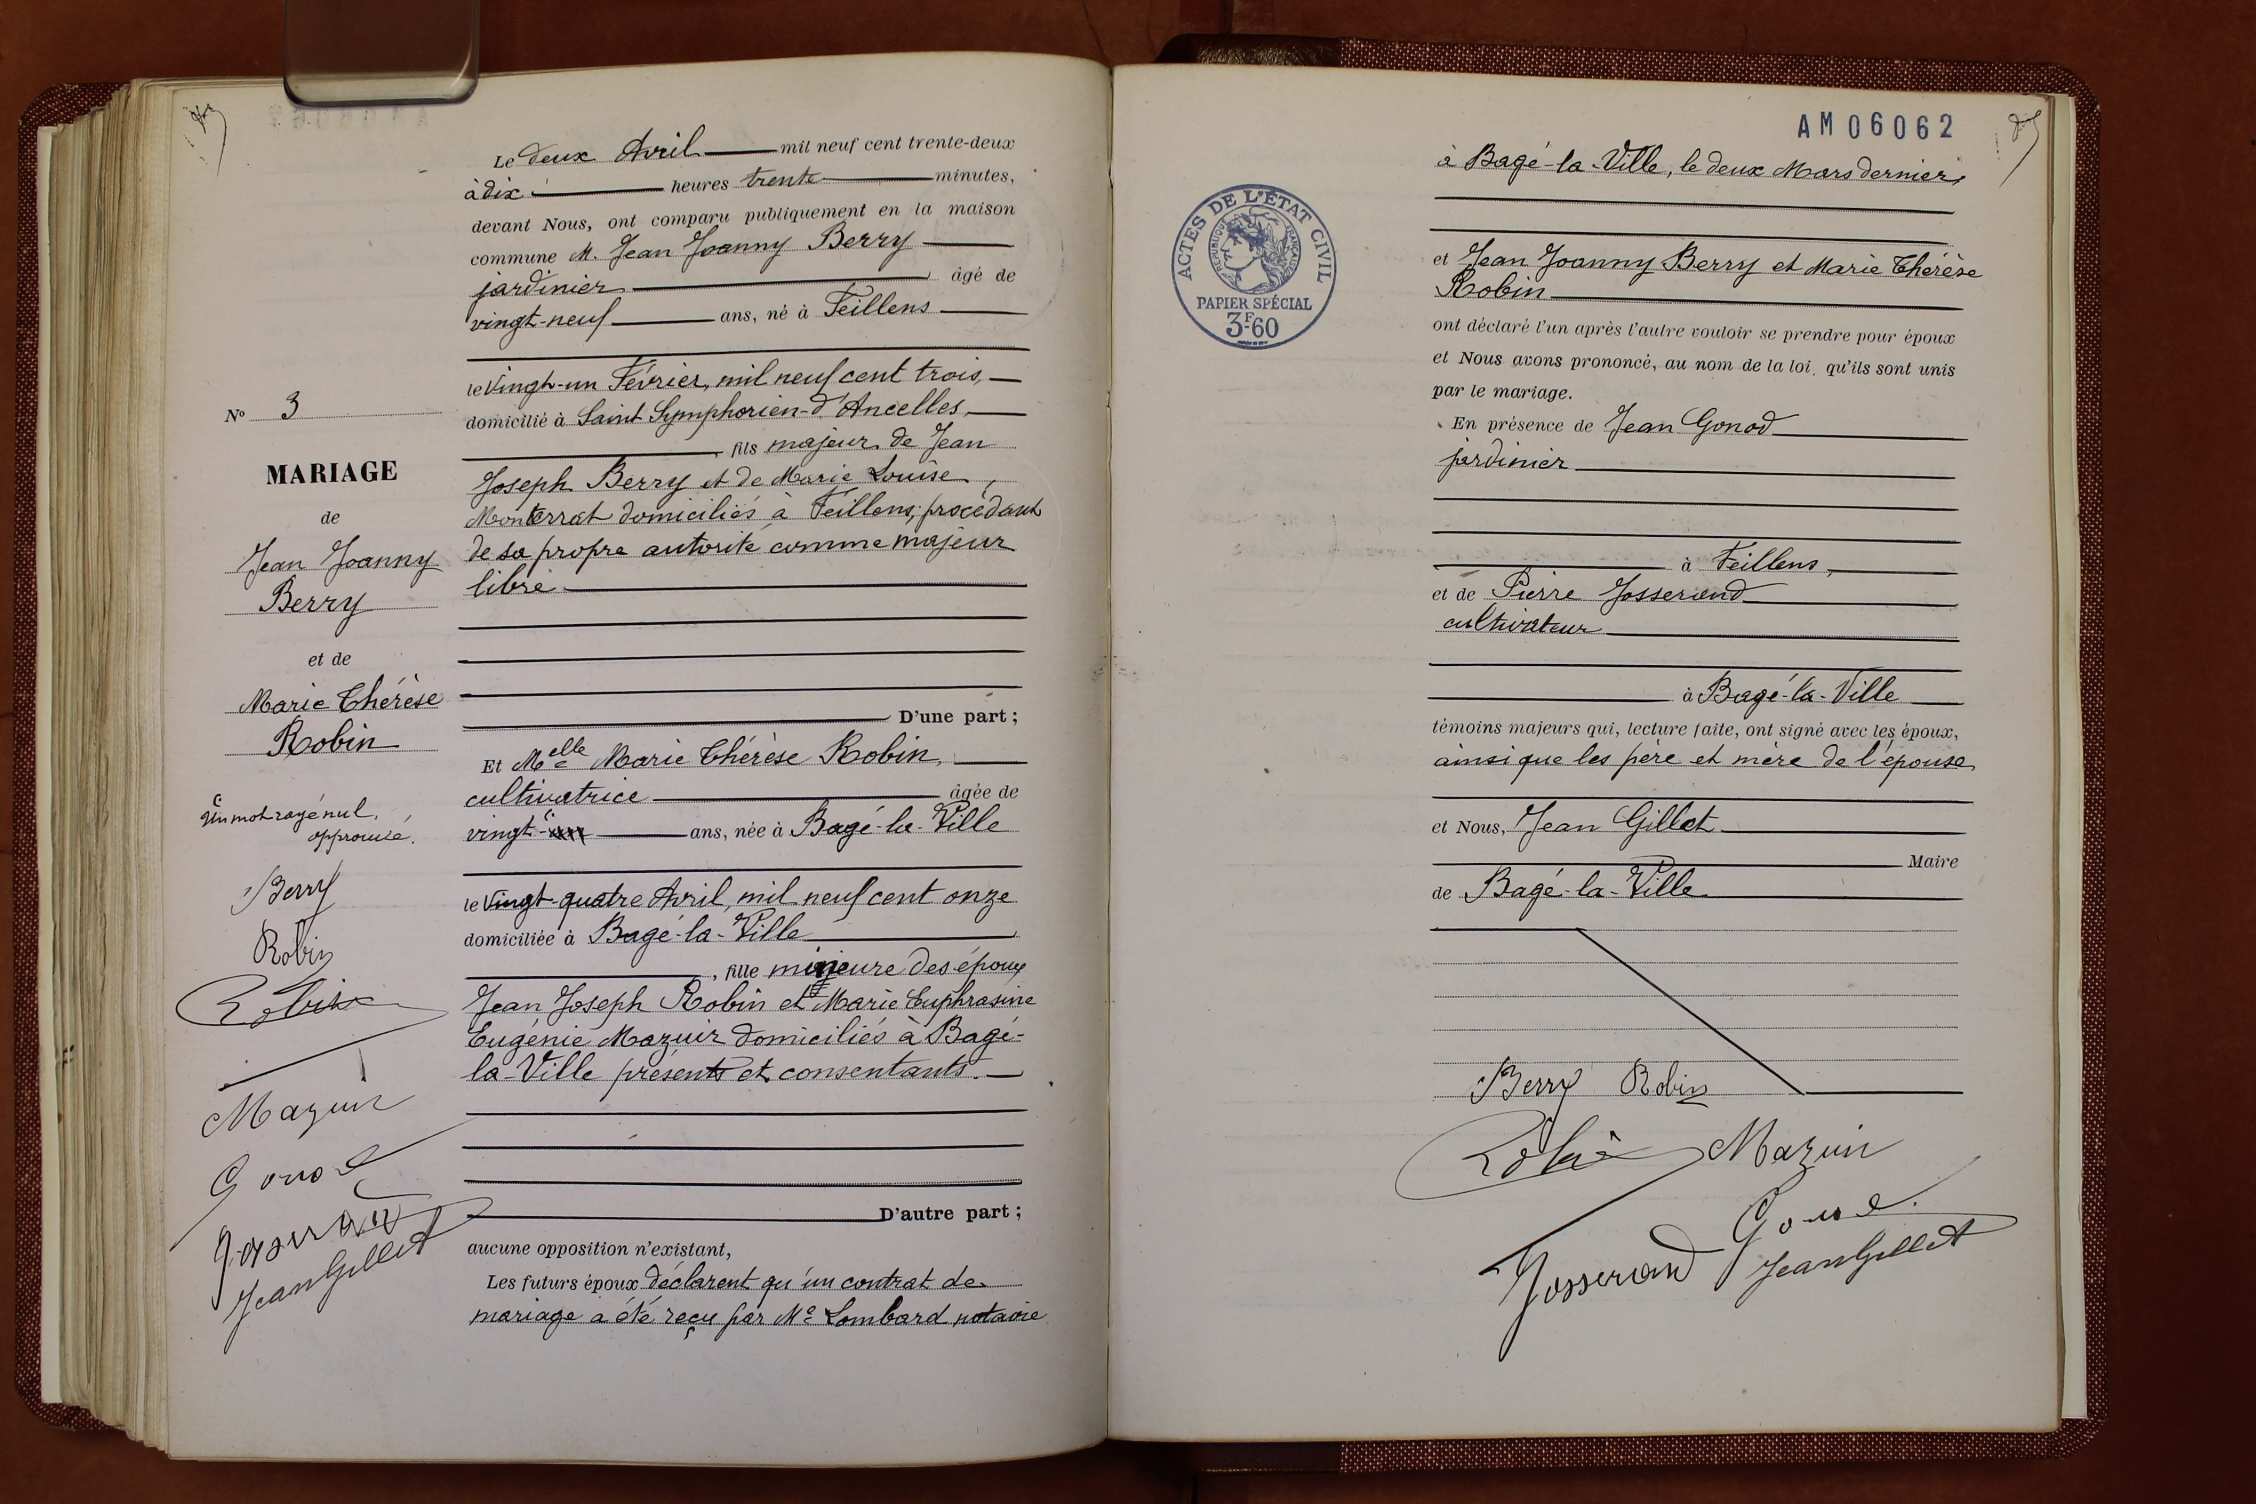 Le deux Avril mil neuf cent trente-deux
à dix heures trente minutes,
devant Nous, ont comparu publiquement en la maison
commune M. Jean Joanny Berry
jardinier âgé de
vingt-neuf ans, né à Feillens
le vingt-un Février, mil neuf cent trois,
domicilié à Saint Symphorien-d'Ancelles,
, fils majeur de Jean
Joseph Berry et de Marie Louise
Monterrat domiciliés à Feillens, procédant
de sa propre autorité comme majeur
libre
D'une part ;
Et Melle Marie Thérèse Robin,
cultivatrice âgée de
vingt- ans, née à Bagé-la-Ville
le vingt-quatre Avril, mil neuf cent onze
domiciliée à Bagé-la-Ville
, fille mineure des époux
Jean Joseph Robin et Marie Euphrasine
Eugénie Mazuir domiciliés à Bagé-
la-Ville présents et consentants.
D'autre part ;
aucune opposition n'existant,
Les futurs époux déclarent qu'un contrat de
mariage a été reçu par Me Lombard notaire
No 3
MARIAGE
de
Jean Joanny
Berry
et de
Marie Thérèse
Robin
Un mot rayé nul.
approuvé.
Berry
Robin
Robin
Mazuir
Gonod
Josserand
Jean Gillet
AM06062
à Bagé-la-Ville, le deux Mars dernier,
ACTES DE L'ÉTAT CIVIL
RÉPUBLIQUE FRANÇAISE
PAPIER SPÉCIAL
3F60
et Jean Joanny Berry et Marie Thérèse
Robin
ont déclaré l'un après l'autre vouloir se prendre pour époux
et Nous avons prononcé, au nom de la loi, qu'ils sont unis
par le mariage.
En présence de Jean Gonod
jardinier
à Feillens,
et de Pierre Josserand
cultivateur
à Bagé-la-Ville
témoins majeurs qui, lecture faite, ont signé avec les époux,
ainsi que les père et mère de l'épouse
et Nous, Jean Gillet
Maire
de Bagé-la-Ville
Berry Robin
Robin Mazuir
Gonod
Josserand Jean Gillet